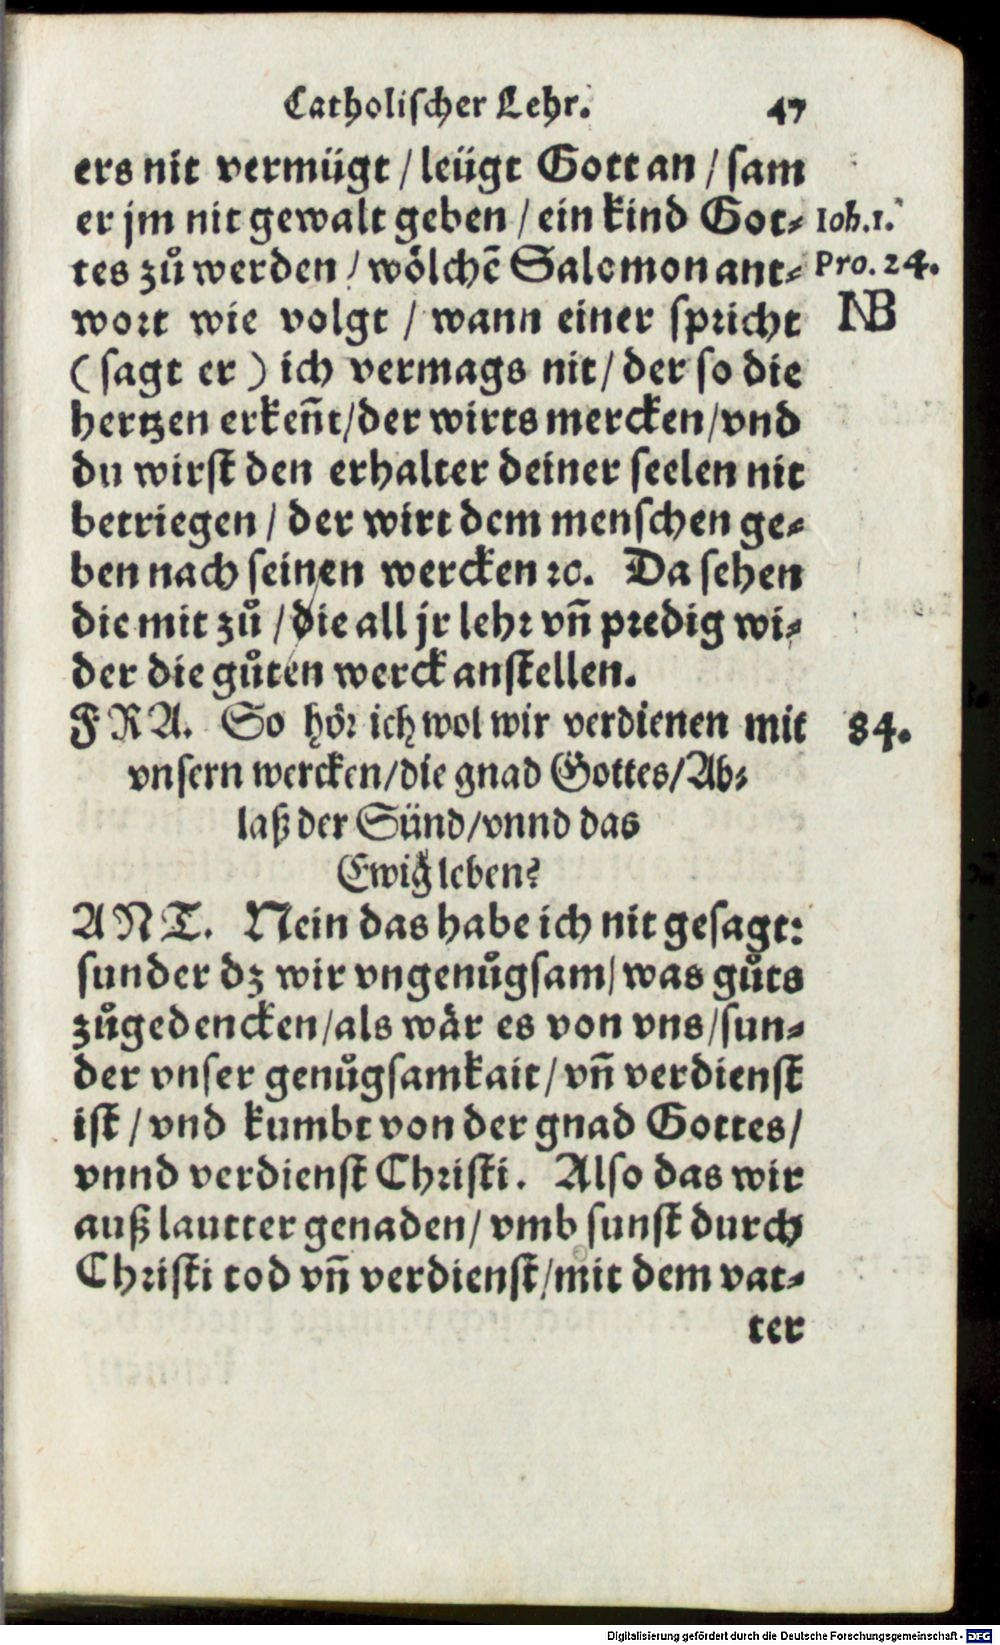 Catholischer Lehr. 47
ers nit vermügt / leügt Gott an / sam
er jm nit gewalt geben / ein kind Got⸗ Ioh.1.
tes zů werden / wölchē Salomon ant⸗ Pro. 24.
wort wie volgt / wann einer spricht NB
( sagt er ) ich vermags nit / der so die
hertzen erkeñt/der wirts mercken/vnd
du wirst den erhalter deiner seelen nit
betriegen / der wirt dem menschen ge⸗
ben nach seinen wercken ꝛc. Da sehen
die mit zů / die all jr lehr vñ predig wi⸗
der die gůten werck anstellen.
FRA. So hör ich wol wir verdienen mit 84.
vnsern wercken/die gnad Gottes/Ab⸗
laß der Sünd/vnnd das
Ewig leben?
ANT. Nein das habe ich nit gesagt:
sunder dz wir vngenůgsam/was gůts
zůgedencken/als wär es von vns/sun⸗
der vnser genůgsamkait/vñ verdienst
ist / vnd kumbt von der gnad Gottes/
vnnd verdienst Christi. Also das wir
auß lautter genaden/ vmb sunst durch
Christi tod vñ verdienst/mit dem vat⸗
ter
Digitalisierung gefördert durch die Deutsche Forschungsgemeinschaft - DFG